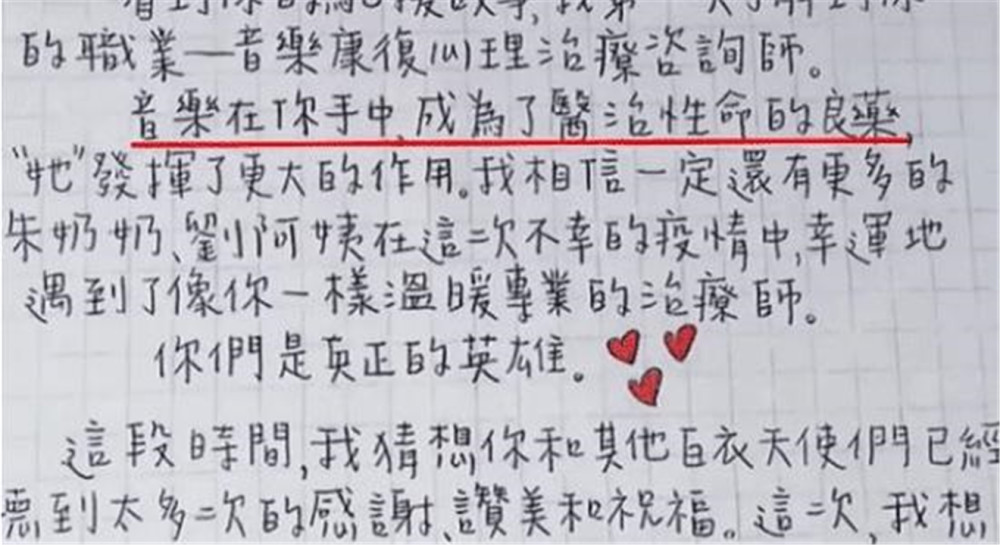 看到你的
的職業—音樂康復心理治療咨詢師。
音樂在你手中,成為了醫治性命的良藥,
“牠”發揮了更大的作用。我相信一定還有更多的
朱奶奶、劉阿姨在這次不幸的疫情中,幸運地
遇到了像你一樣溫暖專業的治療師。
你們是真正的英雄。
這段時間,我猜想你和其他白衣天使們已經
到太多次的感謝、讚美和祝福。這次,我想